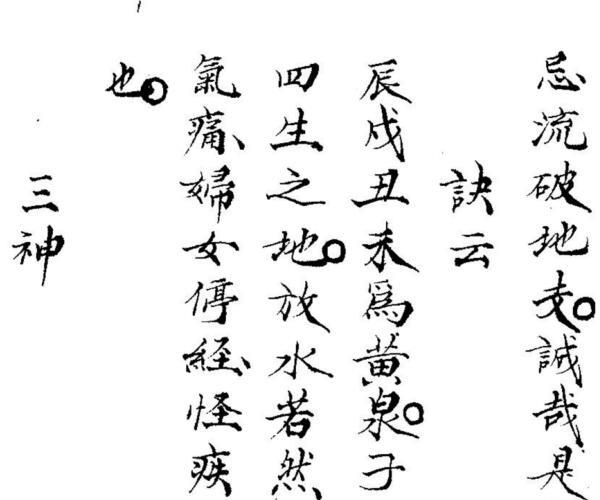 忌流破地支。誠哉是
訣云
辰戌丑未為黃泉。子
四生之地。放水若然
氣痛婦女停経怪疾
也。
三神